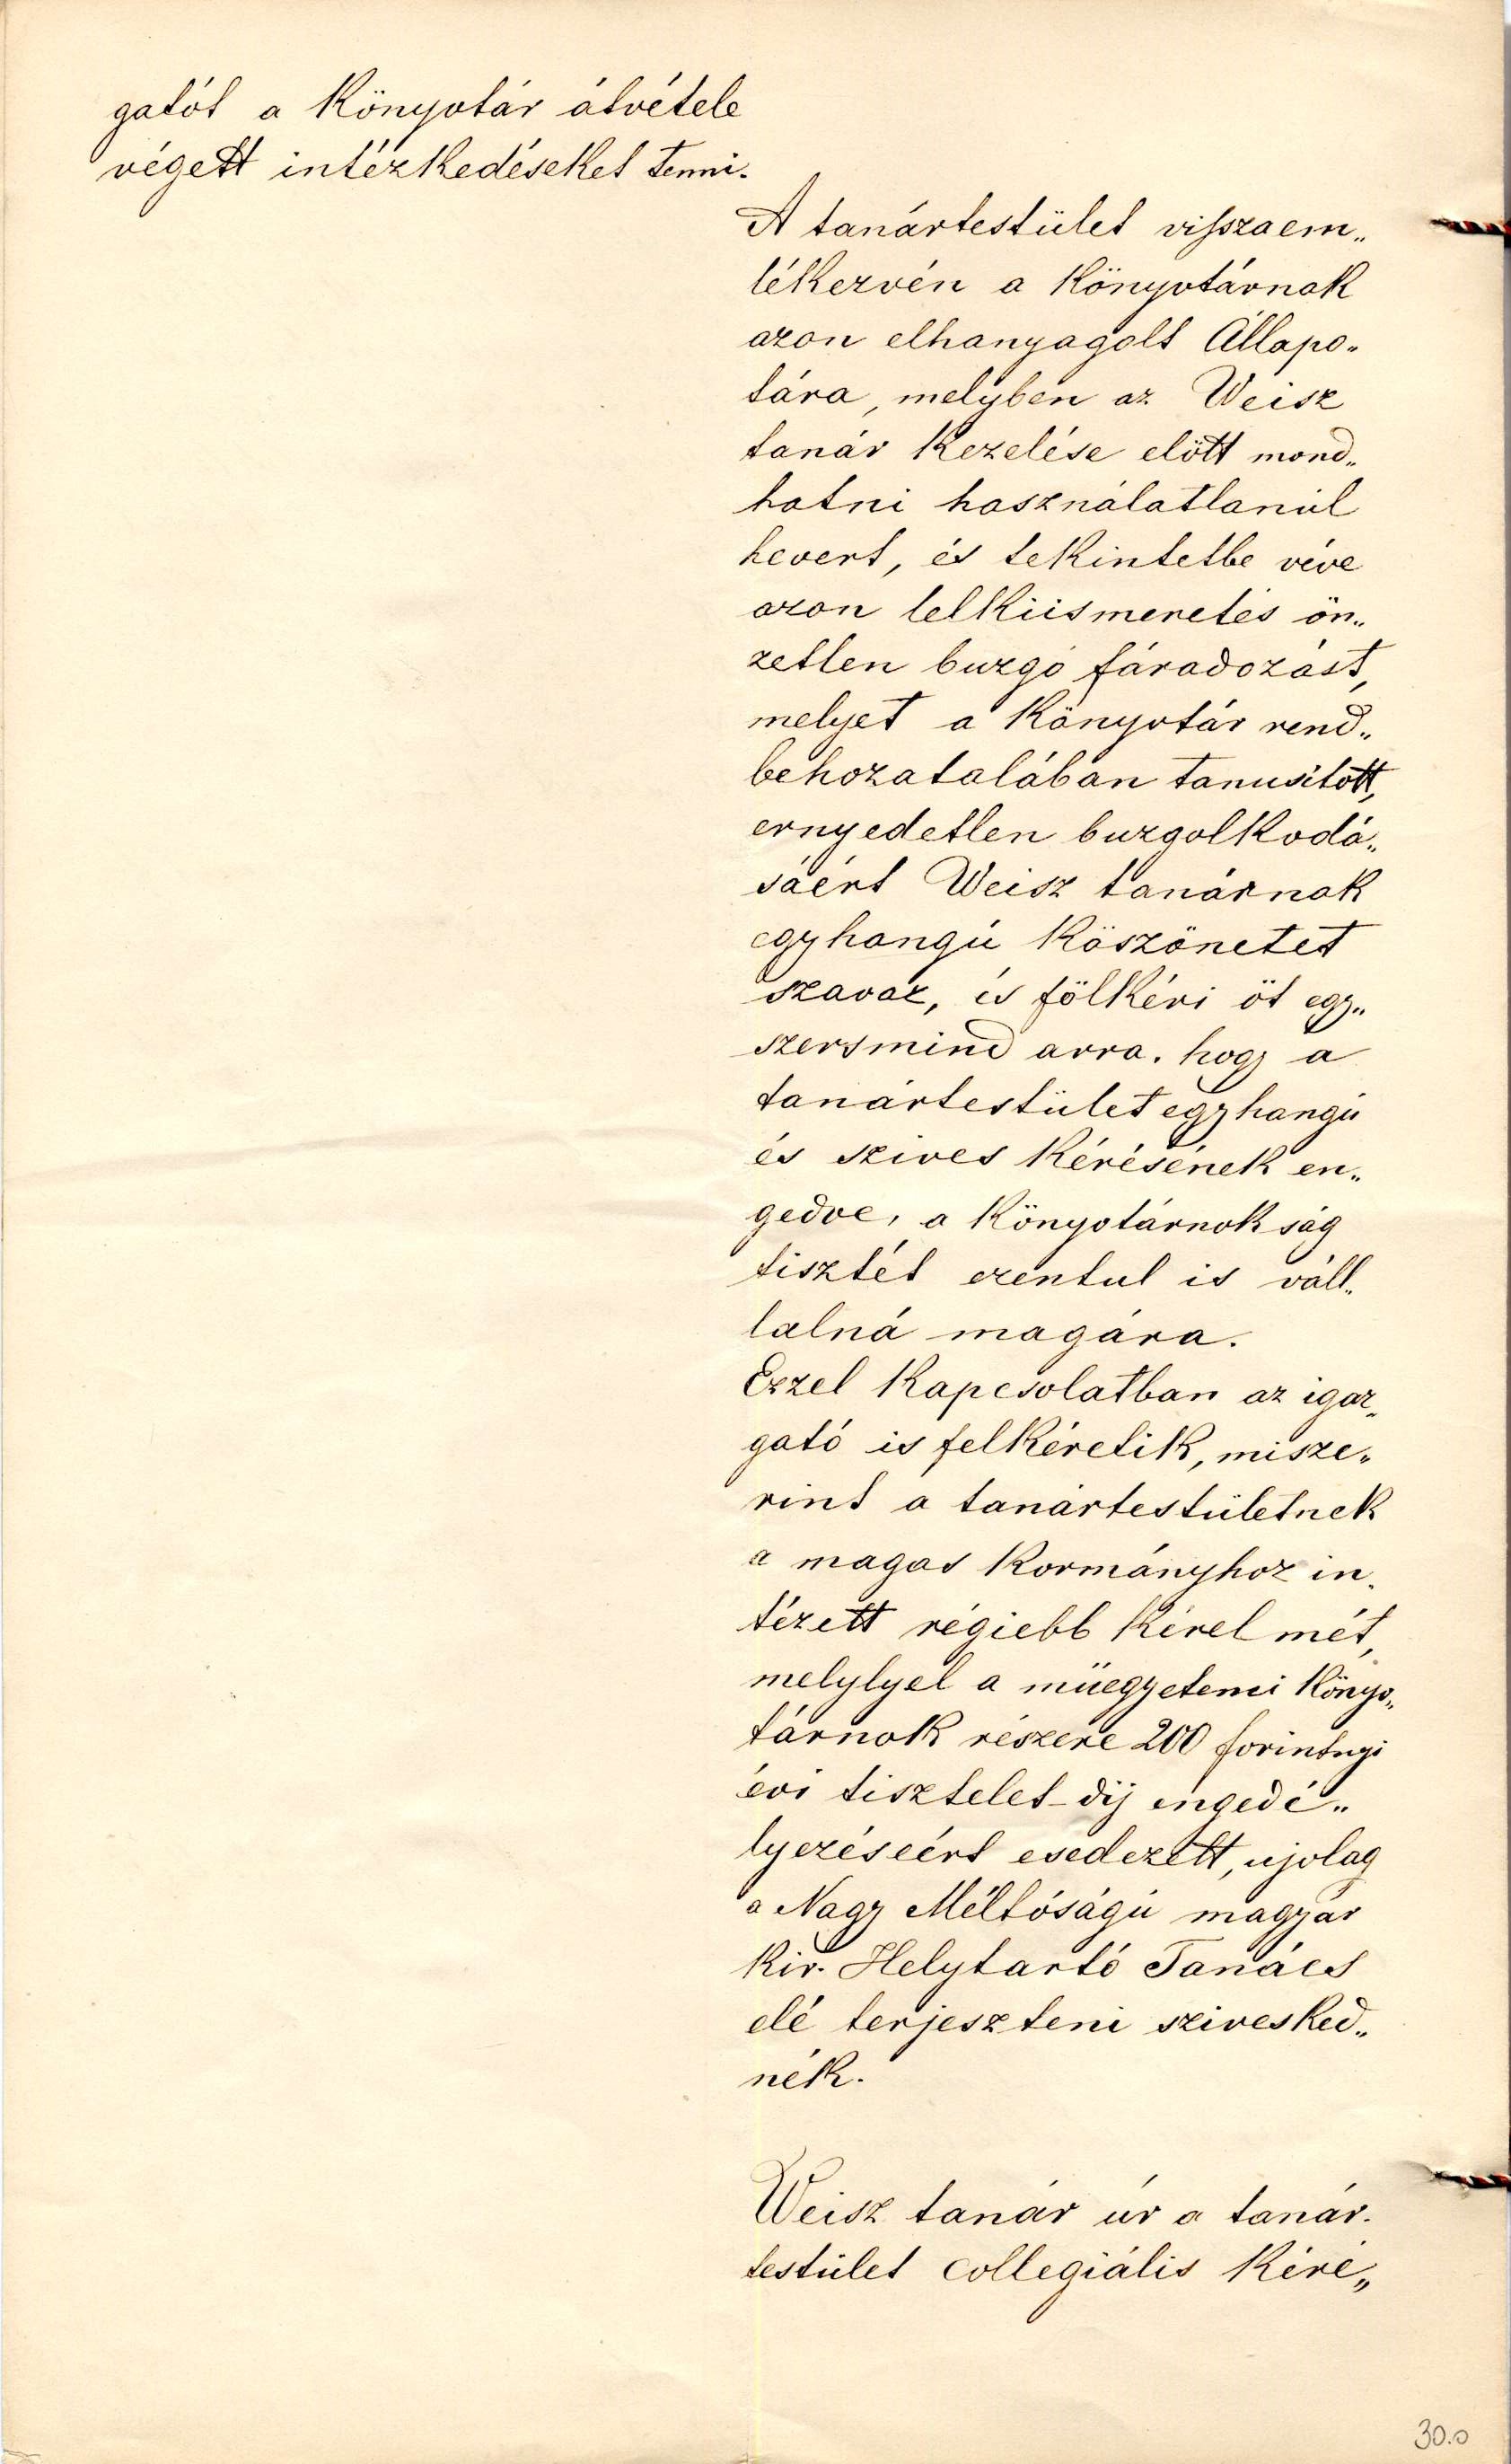 gatót a Könyvtár átvétele
végett intézkedéseket tenni.
A tanártestület visszaem„
lékezvén a Könyvtárnak
azon elhanyagolt Állapo„
tára, melyben az Weisz
tanár Kezelése előtt mond„
hatni használatlanúl
hevert, és tekintetbe véve
azon lelkiismeretes ön„
zetlen buzgó fáradozást,
melyet a Könyvtár rend„
behozatalában tanusított,
ernyedetlen buzgolkodá„
sáért Weisz tanárnak
egyhangú Köszönetet
szavaz, és fölkéri öt egy„
szersmind arra. hogy a
tanártestület egyhangú
és szives Kérésének en„
gedve, a Könyvtárnokság
tisztét ezentul is váll„
lalná magára.
Ezzel Kapcsolatban az igaz„
gató is felkéretik, misze„
rint a tanártestületnek
a magas Kormányhoz in„
tézett régiebb Kérelmét,
melylyel a müegyetemi Könyv„
tárnok részére 200 forintnyi
évi tisztelet-dij engedé„
lyezéseért esedezett, ujolag
a Nagy Méltóságú magyar
Kir. Helytartó Tanács
elé terjeszteni szivesked„
nék.
Weisz tanár úr a tanár.
testület collegiális Kéré„
30.0